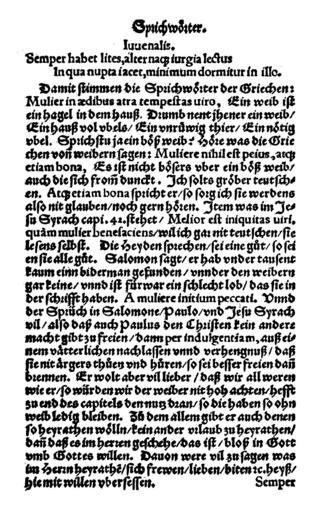 Sprichwörter.
Iuuenalis.
Semper habet lites, alternaq; iurgia lectus
In qua nupta iacet, minimum dormitur in illo.
Damit stimmen die Sprichwörter der Griechen:
Mulier in ædibus atra tempestas uiro, Ein weib ist
ein hagel in dem hauß. Drumb nent jhener ein weib/
Ein hauß vol vbels/ Ein vnrüwig thier/ Ein nötig
vbel. Sprichstu ja ein böß weib? Höre was die Grie
chen von weibern sagen: Muliere nihil est peius, atq;
etiam bona, Es ist nichts bösers vber ein böß weib/
auch die sich from dunckt. Ich solts gröber teutsch=
en. Atq; etiam bona spricht er/ so sorg ich sie werdens
also nit glauben/ noch gern hören. Item was im Je=
su Syrach capi. 42. stehet/ Melior est iniquitas uiri,
quàm mulier benefaciens/ wil ich gar nit teutschen/ sie
lesens selbst. Die Heyden sprechen/ sei eine gůt/ so sei
en sie alle gůt. Salomon sagt/ er hab vnder tausent
kaum einn biderman gefunden/ vnnder den weibern
gar keine/ vnnd ist fürwar ein schlecht lob/ das sie in
der schrifft haben. A muliere initium peccati. Vnnd
der Sprüch in Salomone/ Paulo/ vnd Jesu Syrach
vil/ also daß auch Paulus den Christen kein andere
macht gibt zů freien/ dann per indulgentiam, auß ei=
nem vätterlichen nachlassen vnnd verhengnuß/ daß
sie nit ärgers thüen vnd hüren/ so sei besser freien dañ
brennen. Er wolt aber vil lieber/ daß wir all weren
wie er/ so würden wir der weiber nit hoch achten/ hefft
zů end des capitels den nutz dran/ so die haben so ohn
weib ledig bleiben. Zů dem allem gibt er auch denen
so heyrathen wölln/ kein ander vrlaub zů heyrathen/
dañ daß es im herren geschehe/ das ist/ bloß in Gott
vmb Gottes willen. Dauon were vil zu sagen was
im Herrn heyrathē/ sich frewen/ lieben/ biten ꝛc. heyß/
hie mit willen vbersessen.
Semper